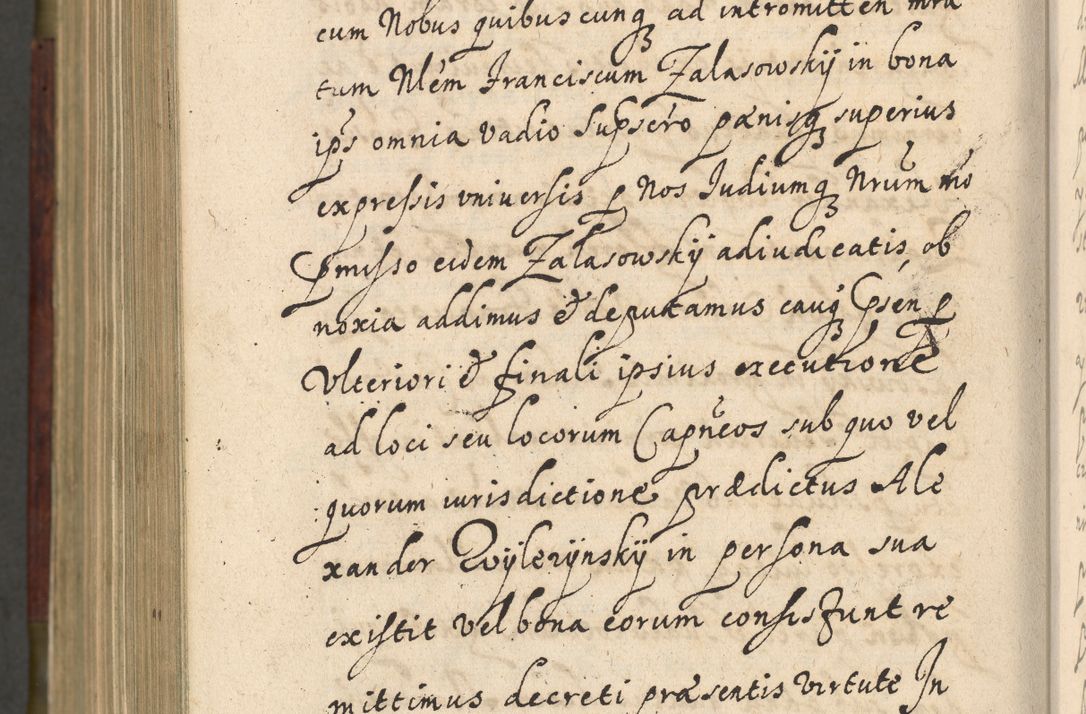 cum Nobus quibuscunq ad intromitten mra
tum Nlem Franciscum Zalasowskÿ in bona
ips omnia vadio supsero pænisq superius
expressis vniuersis p Nos Iudiumq Nrum mo
Pmisso eidem Zalasowskÿ adiudicatis, ob
noxia addimus & deputamus cauq Psen p
Vlteriori & finali ipsius executione
ad loci seu locorum Capneos sub quo vel
quorum iurisdictione prædictus Ale
xander Wÿlezÿnskÿ in persona sua
existit vel bona eorum consistunt re
mittimus decreti præsentis virtute In